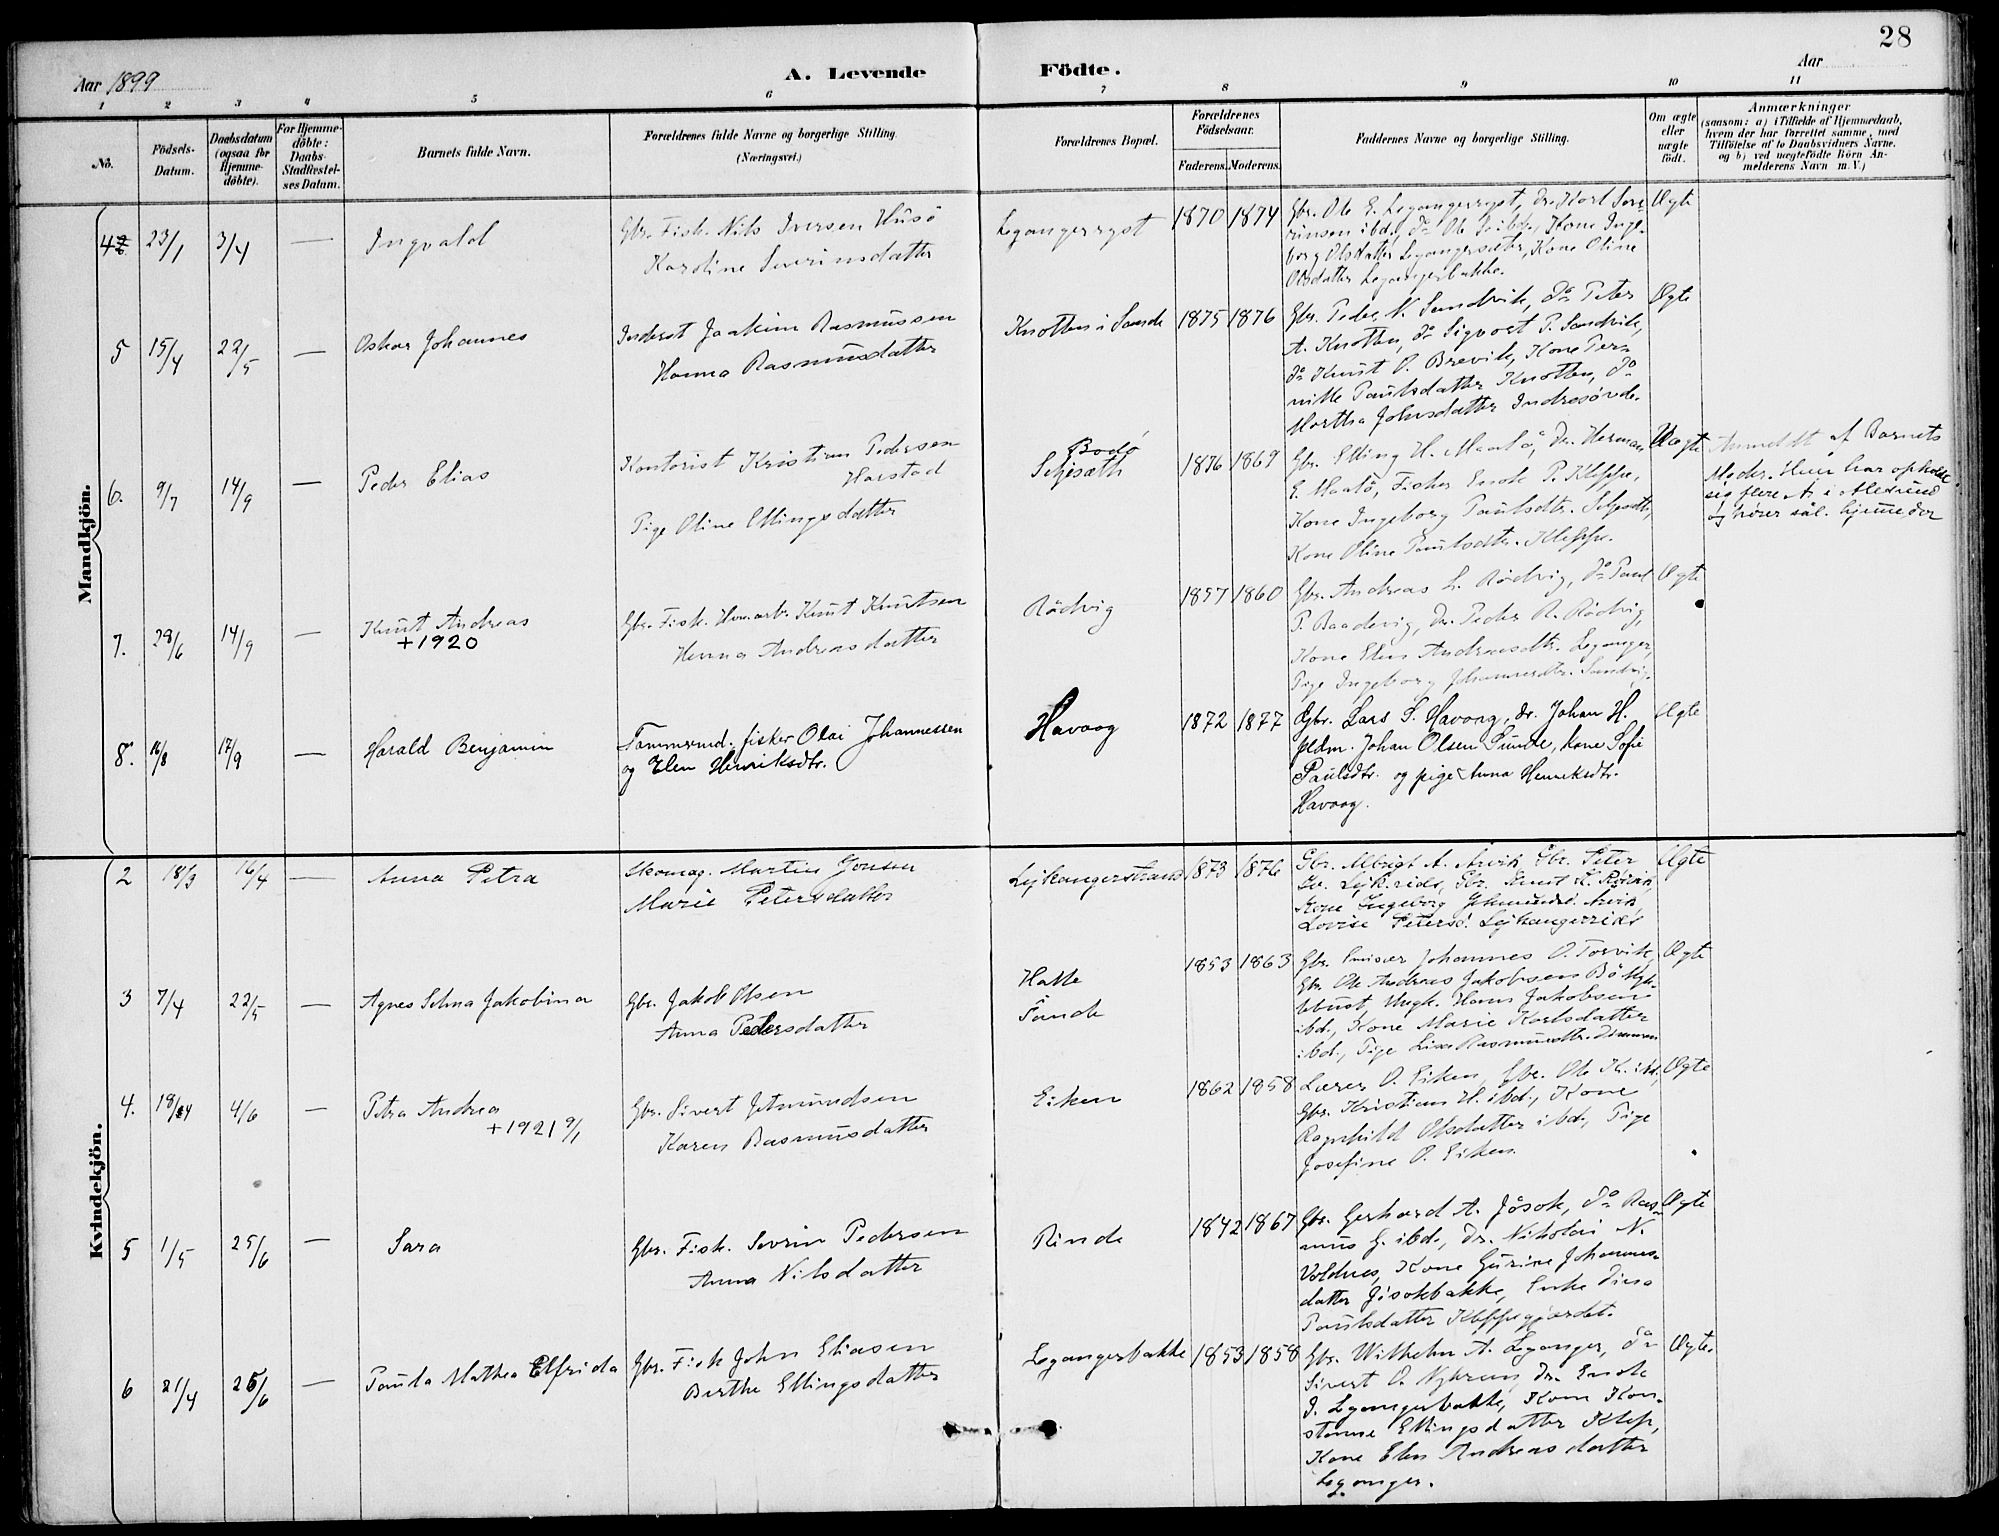 28
Aar 1899
A. Levende Födte.
Aar
1 2 3 4 5 6 7 8 9 10 11
No.
Födsels-Datum.
Daabsdatum (ogsaa for Hjemme-döbte).
For Hjemme-döbte: Daabs-Stadfæstel-ses Datum.
Barnets fulde Navn.
Forældrenes fulde Navne og borgerlige Stilling. (Næringsvei.)
Forældrenes Bopæl.
Forældrenes Födselsaar.
Faderens. Moderens.
Faddernes Navne og borgerlige Stilling.
Om ægte eller uægte födt.
Anmærkninger
(saasom: a) i Tilfælde af Hjemmedaab, hvem der har forrettet samme, med Tilföielse af to Daabsvidners Navne. og b) ved uægtefödte Börn An-melderens Navn m. V.)
Mandkjön.
4 23/1 3/4 — Ingvald
Gbr. Fisk. Nils Iversen Husö
Karoline Severinsdatter
Legangerryst 1870 1874
Gbr. Ole E. Legangerryst, Dr. Karl Seve-
rinsen ibd., Do Ole ibd., Kone Inge-
borg Olsdatter Legangersæter, Kone Oline
Olsdatter Legangerbakke.
Ægte
5 15/4 22/5 — Oskar Johannes
Inderst Joakim Rasmussen
Hanna Rasmusdatter
Knotten i Sande 1875 1876
Gbr. Peder N. Sandvik, Do Peter
A. Knotten, Do Sigvart P. Sandvik,
Do Knut O. Brevik, Kone Per-
nille Paulsdatter Knotten, Do
Martha Johnsdatter Indresövde.
Ægte
6. 9/7 14/9 — Peder Elias
Kontorist Kristian Pedersen
Harstad
Pige Oline Ellingsdatter
Bodö
Seljesæth 1876 1869
Gbr. Elling H. Maalö, Dr. Herman
E. Maalö, Fisker Enok P. Kleppe,
Kone Ingeborg Paulsdtr. Seljesæth,
Kone Oline Paulsdtr. Kleppe.
Uægte
Anmeldt af Barnets
Moder. Hun har opholdt
sig flere Ar i Alesund
og hører sål. hjemme der
7. 28/6 14/9 — Knut Andreas
+1920
Gbr. Fisk. Knut Knutsen
Hanna Andreasdatter
Rödvig 1857 1860
Gbr. Andreas L. Rödvig, Do Paul
P. Baadsvig, Dr. Peder R. Rödvig,
Kone Elen Andreasdtr. Leganger,
Pige Ingeborg Johannesdtr. Sandvig.
Ægte
8. 16/8 17/9 — Harald Benjamin
Tømmermd. fisker Olai Johannessen
og Elen Henriksdtr.
Havaag 1872 1877
Gbr. Lars S. Havaag, dr. Johan H.
pldm. Johan Olsen Sunde, kone Sofie
Paulsdtr. og pige Anna Henriksdtr.
Havaag.
Ægte
Kvindekjön.
2 18/3 16/4 — Anna Petra
Skomag. Martin Jensen
Marie Petersdatter
Lejkangerstrand 1873 1876
Gbr. Albrigt A. Arvik Gbr. Peter
Gbr. Knut K. Rövik,
Kone Ingeborg Arvik,
Lovise Petersd.
Ægte
3 7/4 22/5 — Agnes Selma Jakobina
Gbr. Jakob Olsen
Anna Pedersdatter
Halle
Sande
1853 1863
Gbr. Johannes O. Torvik,
Gbr. Ole Andreas Jakobsen
Ungk. Hans Jakobsen
ibd., Kone Marie Karlsdatter
ibd., Pige Lisa Rasmusdtr.
Ægte
4. 18/4 4/6 — Petra Andrea
+1921 9/1
Gbr. Sivert Jetmundsen
Karen Rasmusdatter
Eiken 1862 1858
Lærer O. Eiken, Gbr. Ole K. ibd.,
Gbr. Kristian H. ibd., Kone
Ragnhild Olsdatter ibd., Pige
Josefine O. Eiken.
Ægte
5 1/5 25/6 — Sara
Gbr. Fisk. Severin Pedersen
Anna Nilsdatter
Rinde 1842 1867
Gbr. Gerhard A. Jösok, Do Ras-
mus G. ibd., Dr. Nikolai N.
Voldnes, Kone Gurine Johannes-
datter Jösokbakke, Enke Dina
Paulsdatter Kleppegjærdet.
Ægte
6 21/4 25/6 — Paula Mathea Elfrida
Gbr. Fisk John Eliasen
Berthe Ellingsdatter
Legangerbakke 1853 1858
Gbr. Wilhelm A. Leganger, Do
Sivert O. Nykrem, Dr. Enok
J. Legangerbakke, Kone Kon-
stanse Ellingsdatter Klep,
Kone Elen Andreasdatter
Leganger.
Ægte.